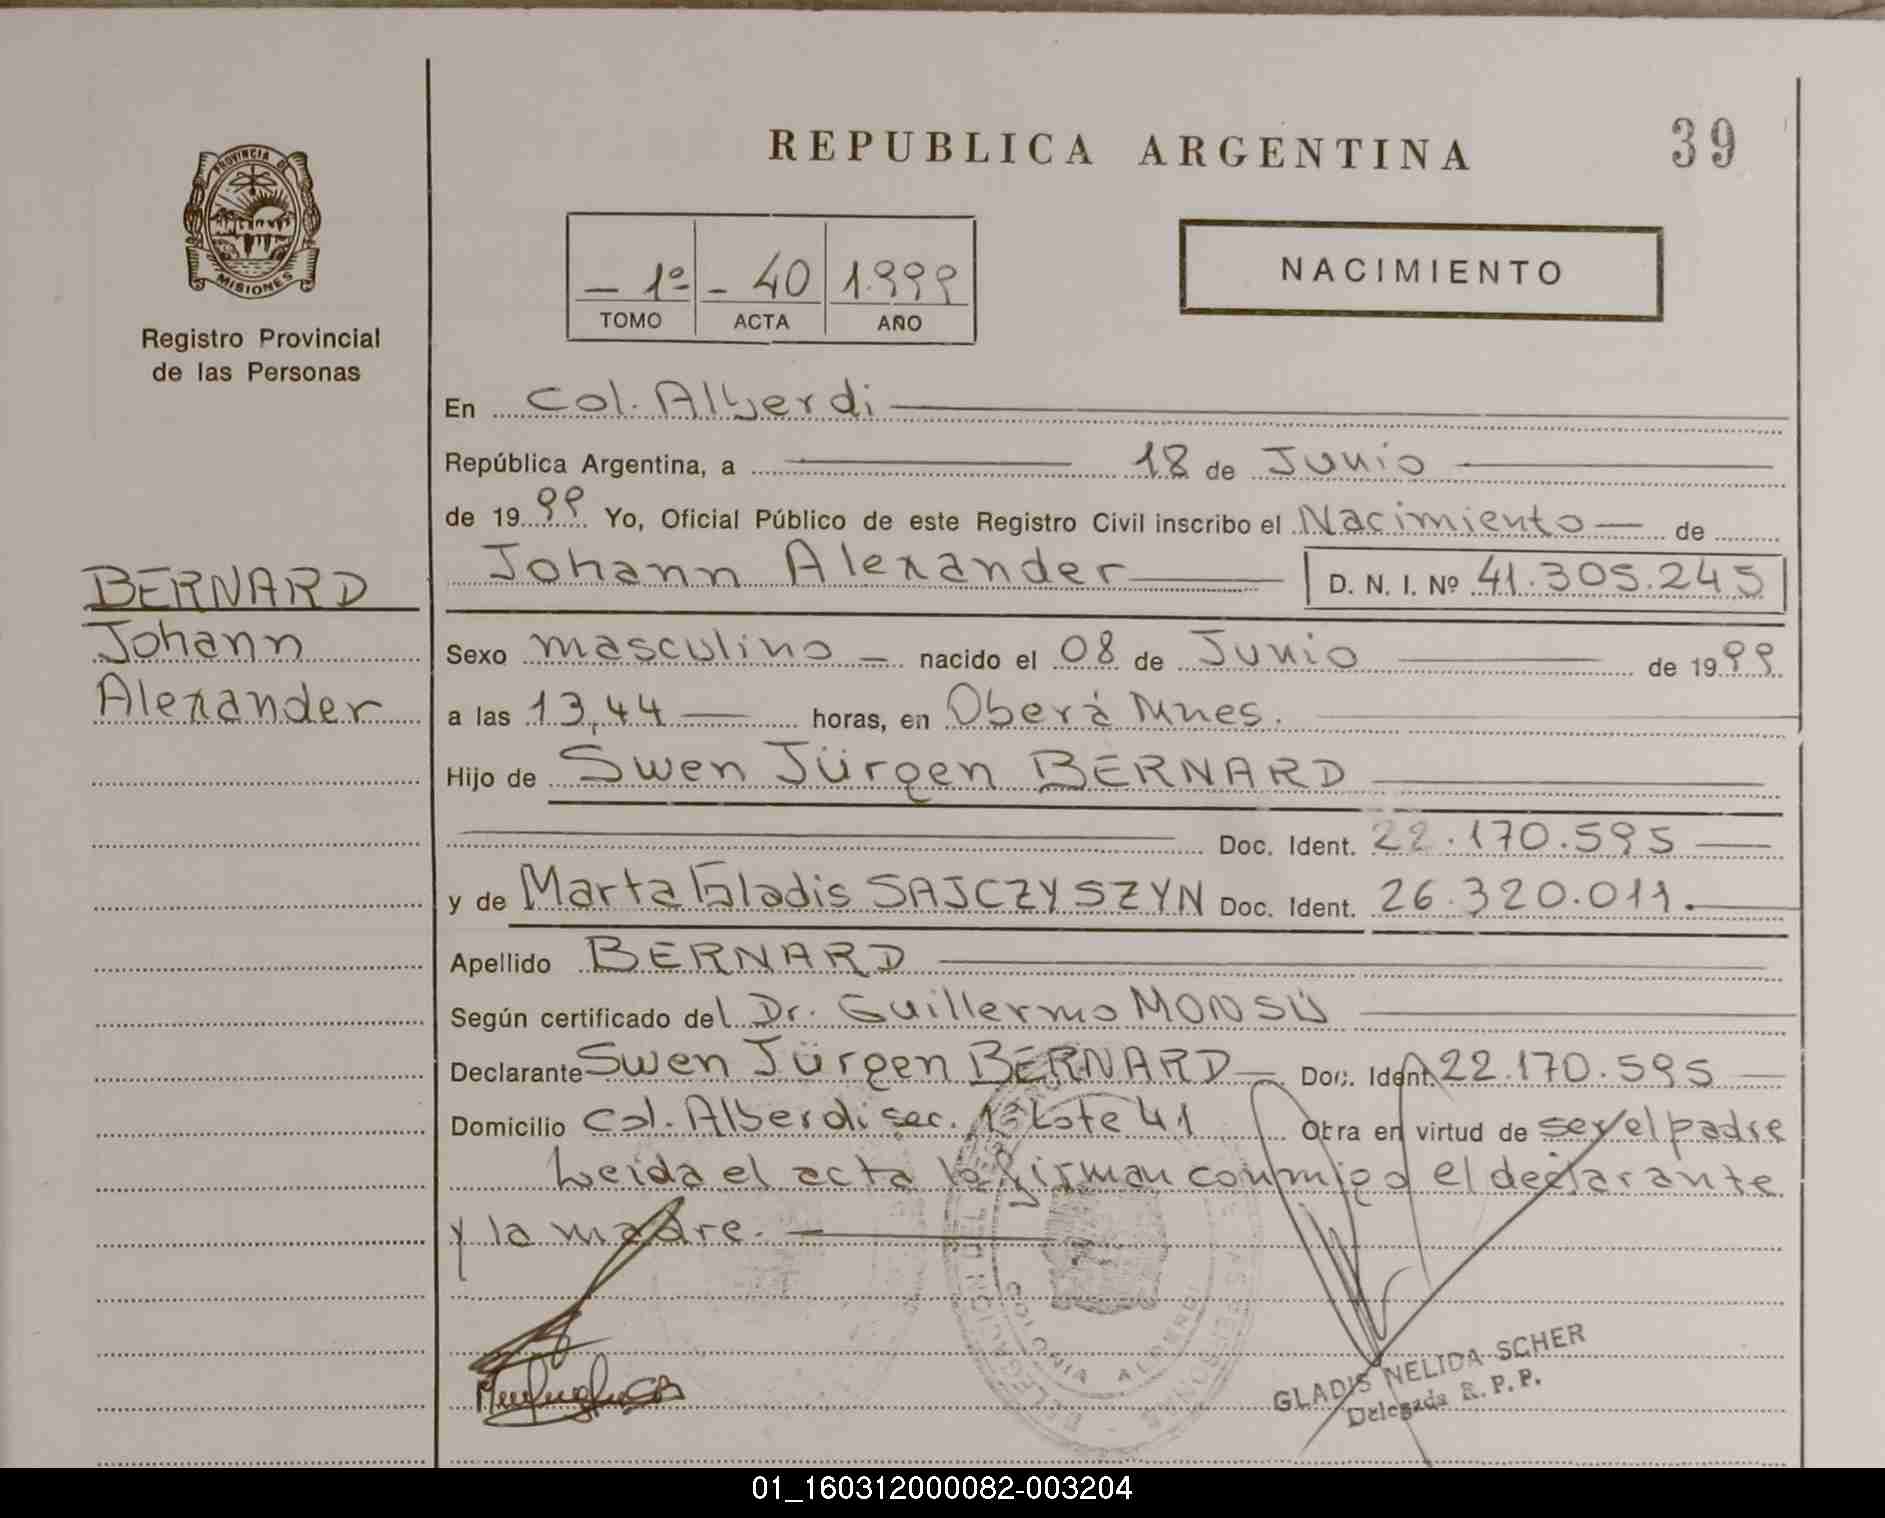 REPUBLICA ARGENTINA
39
PROVINCIA DE
MISIONES
Registro Provincial
de las Personas
- 1º - 40 1.999
TOMO ACTA AÑO
NACIMIENTO
En Col. Alberdi
República Argentina, a 18 de Junio
de 1999 Yo, Oficial Público de este Registro Civil inscribo el Nacimiento de
Johann Alexander D. N. I. Nº 41.305.245
BERNARD
Johann
Alexander
Sexo masculino - nacido el 08 de Junio de 1999
a las 13,44 horas, en Oberá Mnes.
Hijo de Swen Jürgen BERNARD
Doc. Ident. 22.170.595
y de Marta Gladis SAJCZYSZYN Doc. Ident. 26.320.011.
Apellido BERNARD
Según certificado del Dr. Guillermo MONSÚ
Declarante Swen Jürgen BERNARD Doc. Ident. 22.170.595
Domicilio Col. Alberdi sec. 1ª Lote 41 Obra en virtud de ser el padre
Leida el acta la firman conmigo el declarante
y la madre.
COLONIA ALBERDI
GLADIS NELIDA SCHER
Delegada R. P. P.
01_160312000082-003204